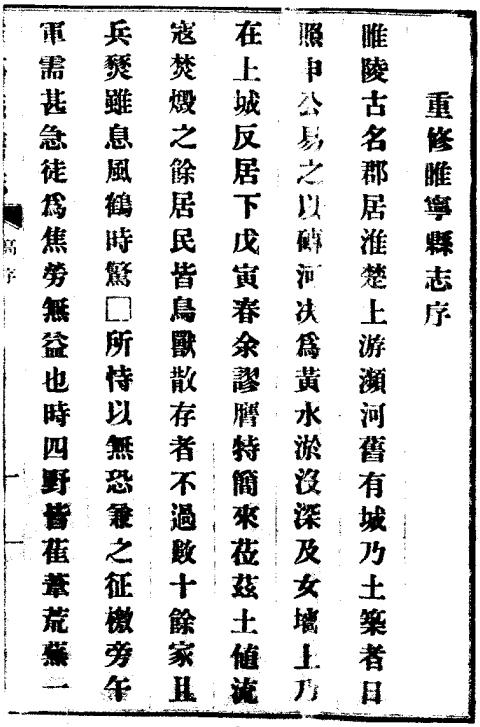 重修睢寧縣志序
睢陵古名郡居淮楚上游瀕河舊有城乃土築者日
照申公易之以磚河決爲黃水淤沒深及女墻上乃
在上城反居下戊寅春余謬膺特簡來莅茲土値流
寇焚燬之餘居民皆鳥獸散存者不過數十餘家且
兵燹雖息風鶴時驚□所恃以無恐兼之征檄旁午
軍需甚急徒爲焦勞無益也時四野皆萑葦荒蕪一
高序